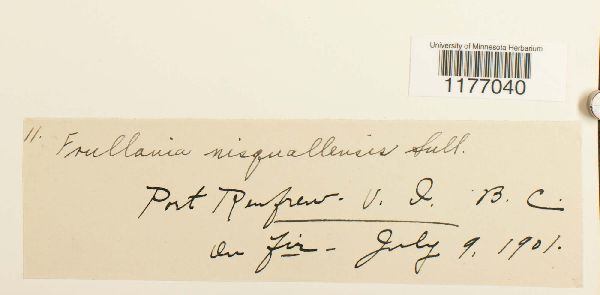 University of Minnesota Herbarium
1177040
11. Frullania nisquallensis Sull.
Port Renfrew. V. I. B. C.
On fir - July 9, 1901.